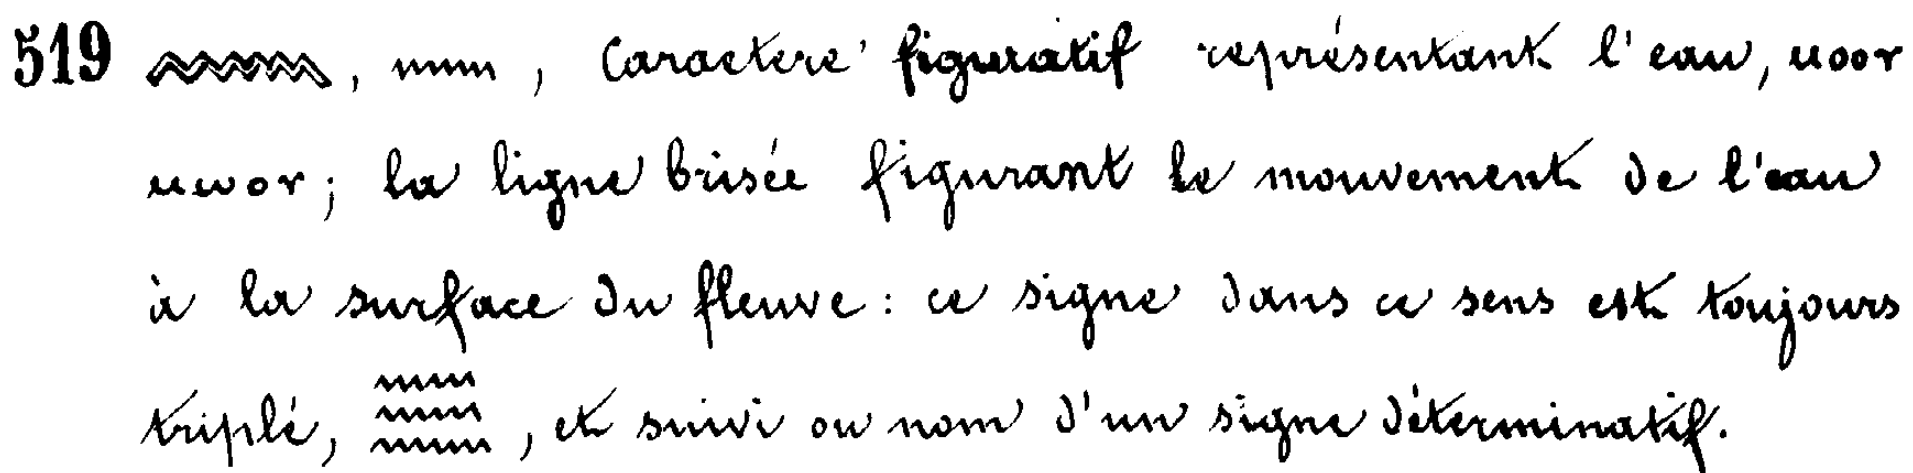 519 𓈖, 𓈖, Caractère figuratif représentant l'eau, ⲙⲟⲟⲩ
ⲙⲱⲟⲩ; la ligne brisée figurant le mouvement de l'eau
à la surface du fleuve : ce signe dans ce sens est toujours
triplé, 𓈗, et suivi ou nom d'un signe déterminatif.